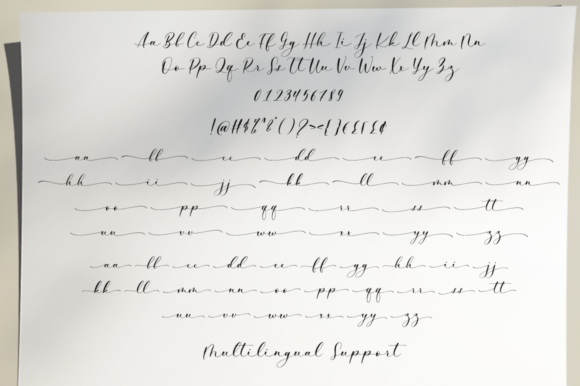 Aa Bb Cc Dd Ee Ff Gg Hh Ii Jj Kk Ll Mm Nn
Oo Pp Qq Rr Ss Tt Uu Vv Ww Xx Yy Zz
0123456789
aa bb cc dd ee ff gg
hh ii jj kk ll mm nn
oo pp qq rr ss tt
uu vv ww xx yy zz
aa bb cc dd ee ff gg hh ii jj
kk ll mm nn oo pp qq rr ss tt
uu vv ww xx yy zz
Multilingual Support